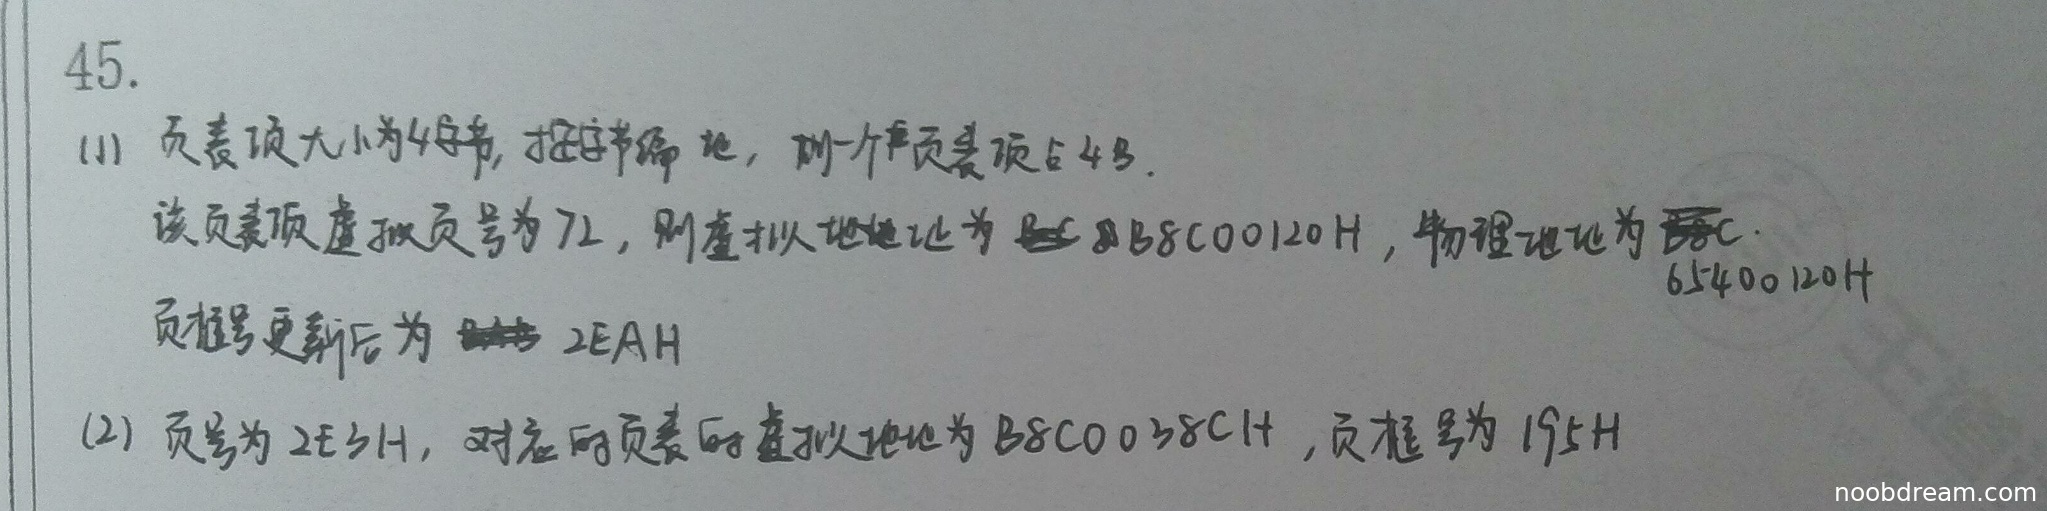 45.
(1) 页表项大小为4字节, 按字节编地, 则一个页表项占4B.
该页表项虚拟页号为72, 则虚拟地址为 B8C00120H, 物理地址为
65400120H
页框号更新后为 2EAH
(2) 页号为 2E3H, 对应的页表的虚拟地址为 B8C0038CH, 页框号为 195H
noobdream.com